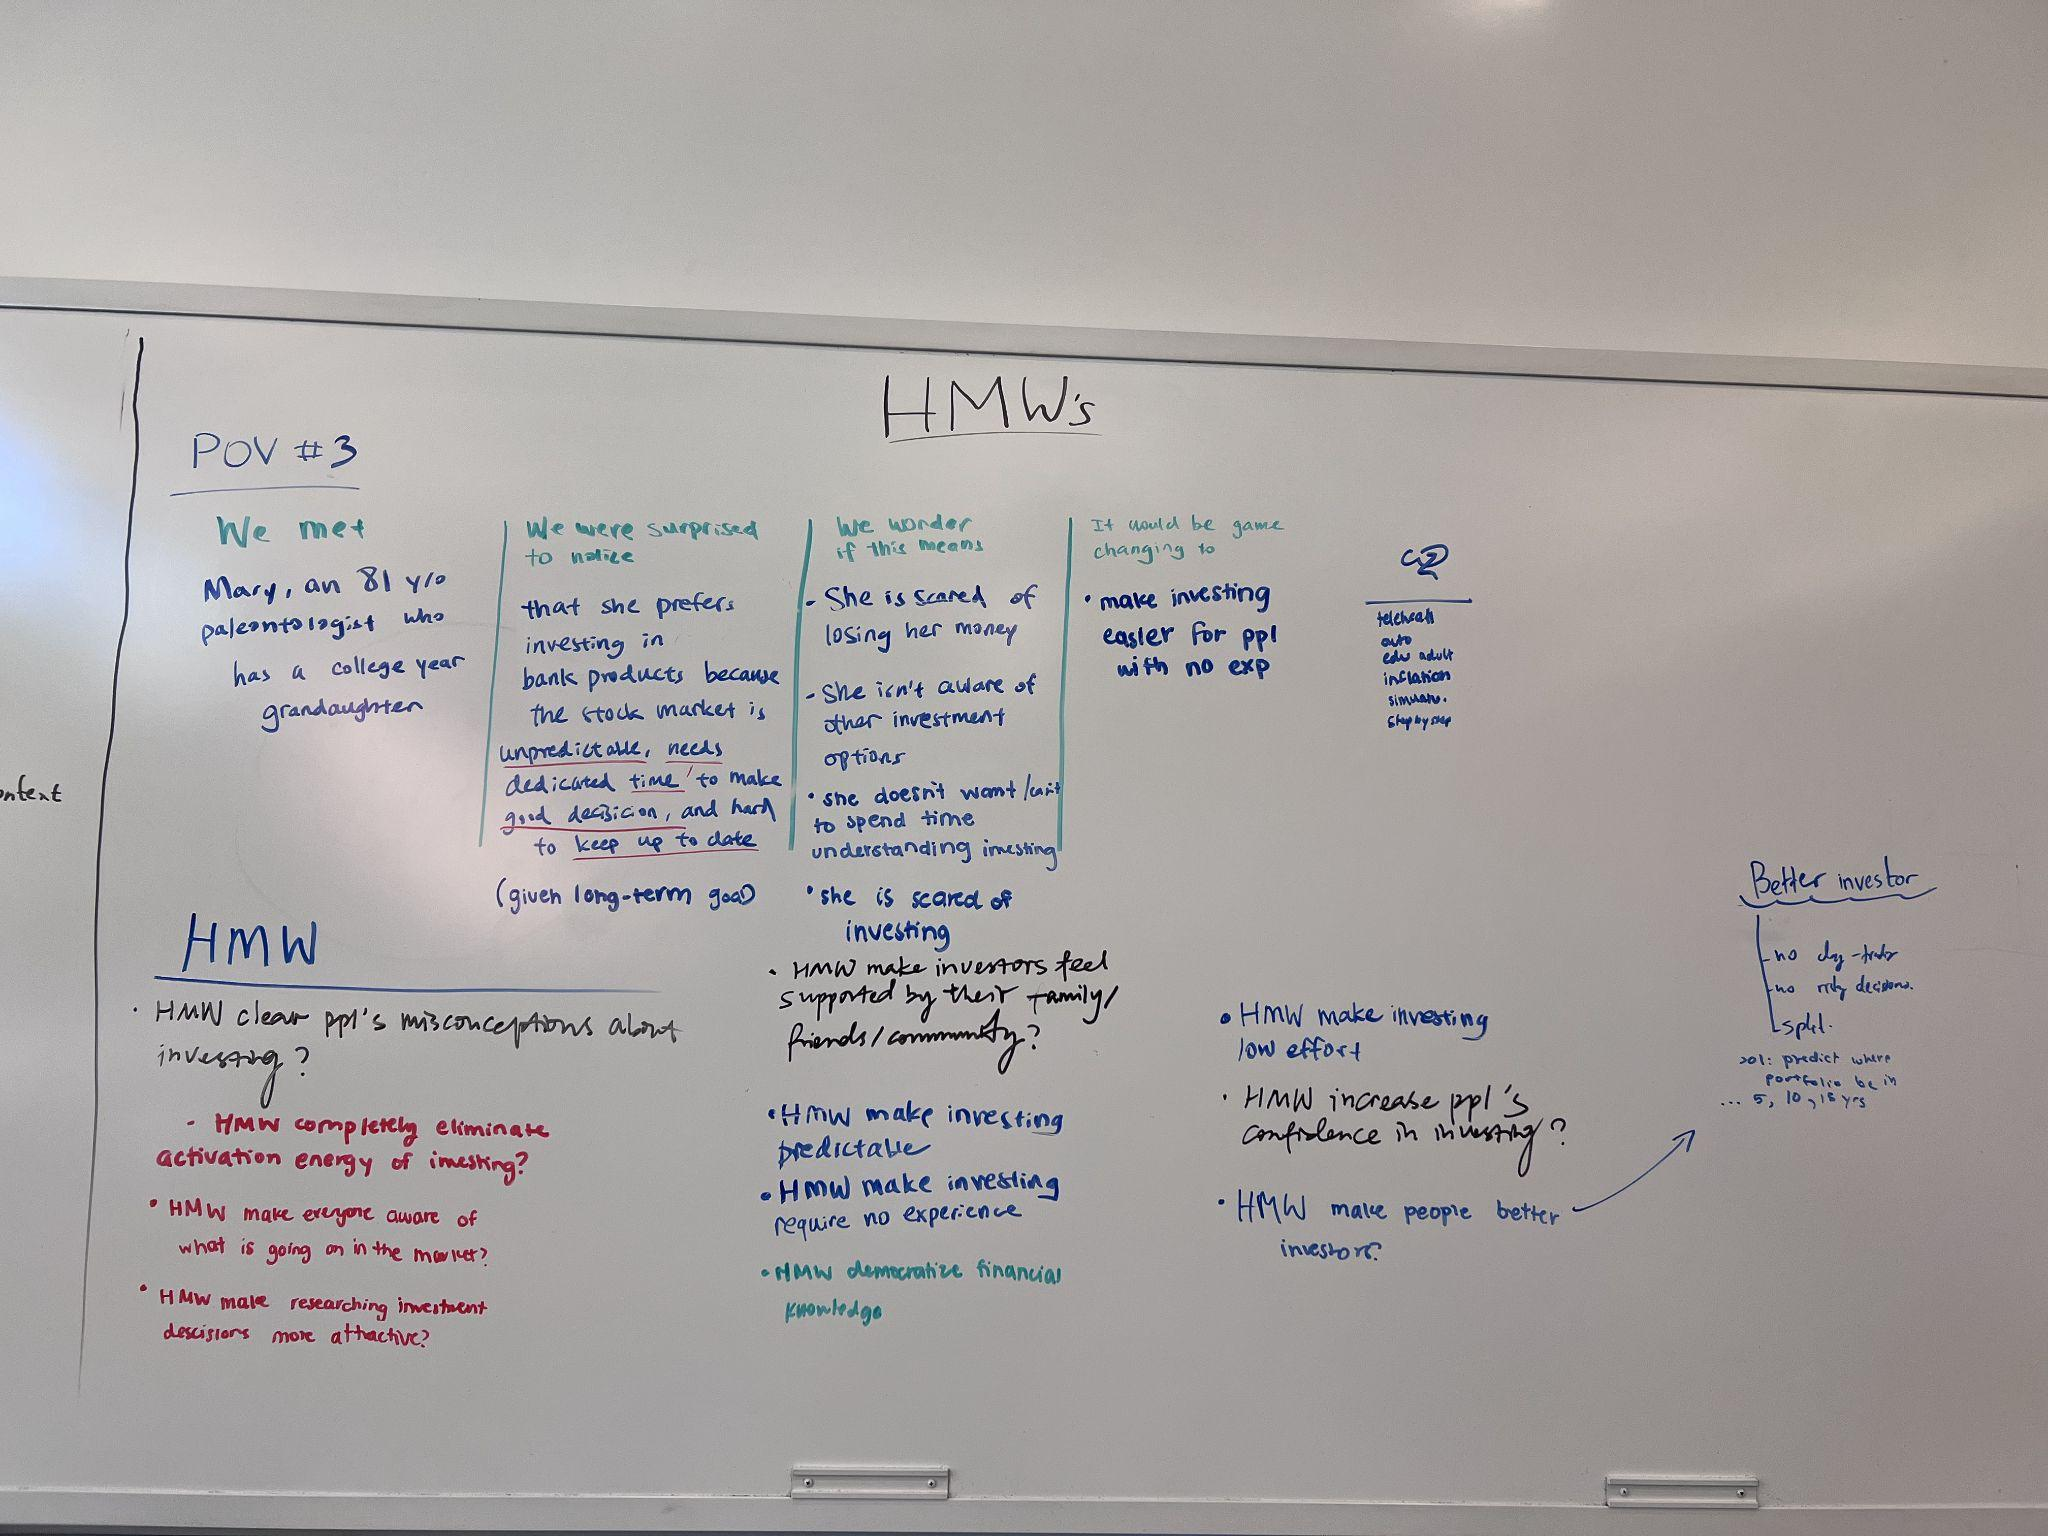 HMW's
POV #3
We met
Mary, an 81 y/o
paleontologist who
has a college year
grandaughter
We were surprised
to notice
that she prefers
investing in
bank products because
the stock market is
unpredictable, needs
dedicated time to make
good decisicion, and hard
to keep up to date
(given long-term goal)
We wonder
if this means
- She is scared of
losing her money
- She isn't aware of
other investment
options
• she doesn't want/can't
to spend time
understanding investing
• she is scared of
investing
It would be game
changing to
• make investing
easier for ppl
with no exp
auto
edu adult
inflation
simulato.
step by step
ontext
HMW
• HMW clear ppl's misconceptions about
investing?
- HMW completely eliminate
activation energy of investing?
• HMW make everyone aware of
what is going on in the market?
• HMW make researching investment
descisions more attractive?
• HMW make investors feel
supported by their family/
friends/community?
• HMW make investing
predictable
• HMW make investing
require no experience
• HMW democratize financial
knowledge
• HMW make investing
low effort
• HMW increase ppl's
confidence in investing?
• HMW make people better
investors?
Better investor
- no day-trader
- no risky decisions.
- split.
predict where
portfolio be in
... 5, 10, 15 yrs